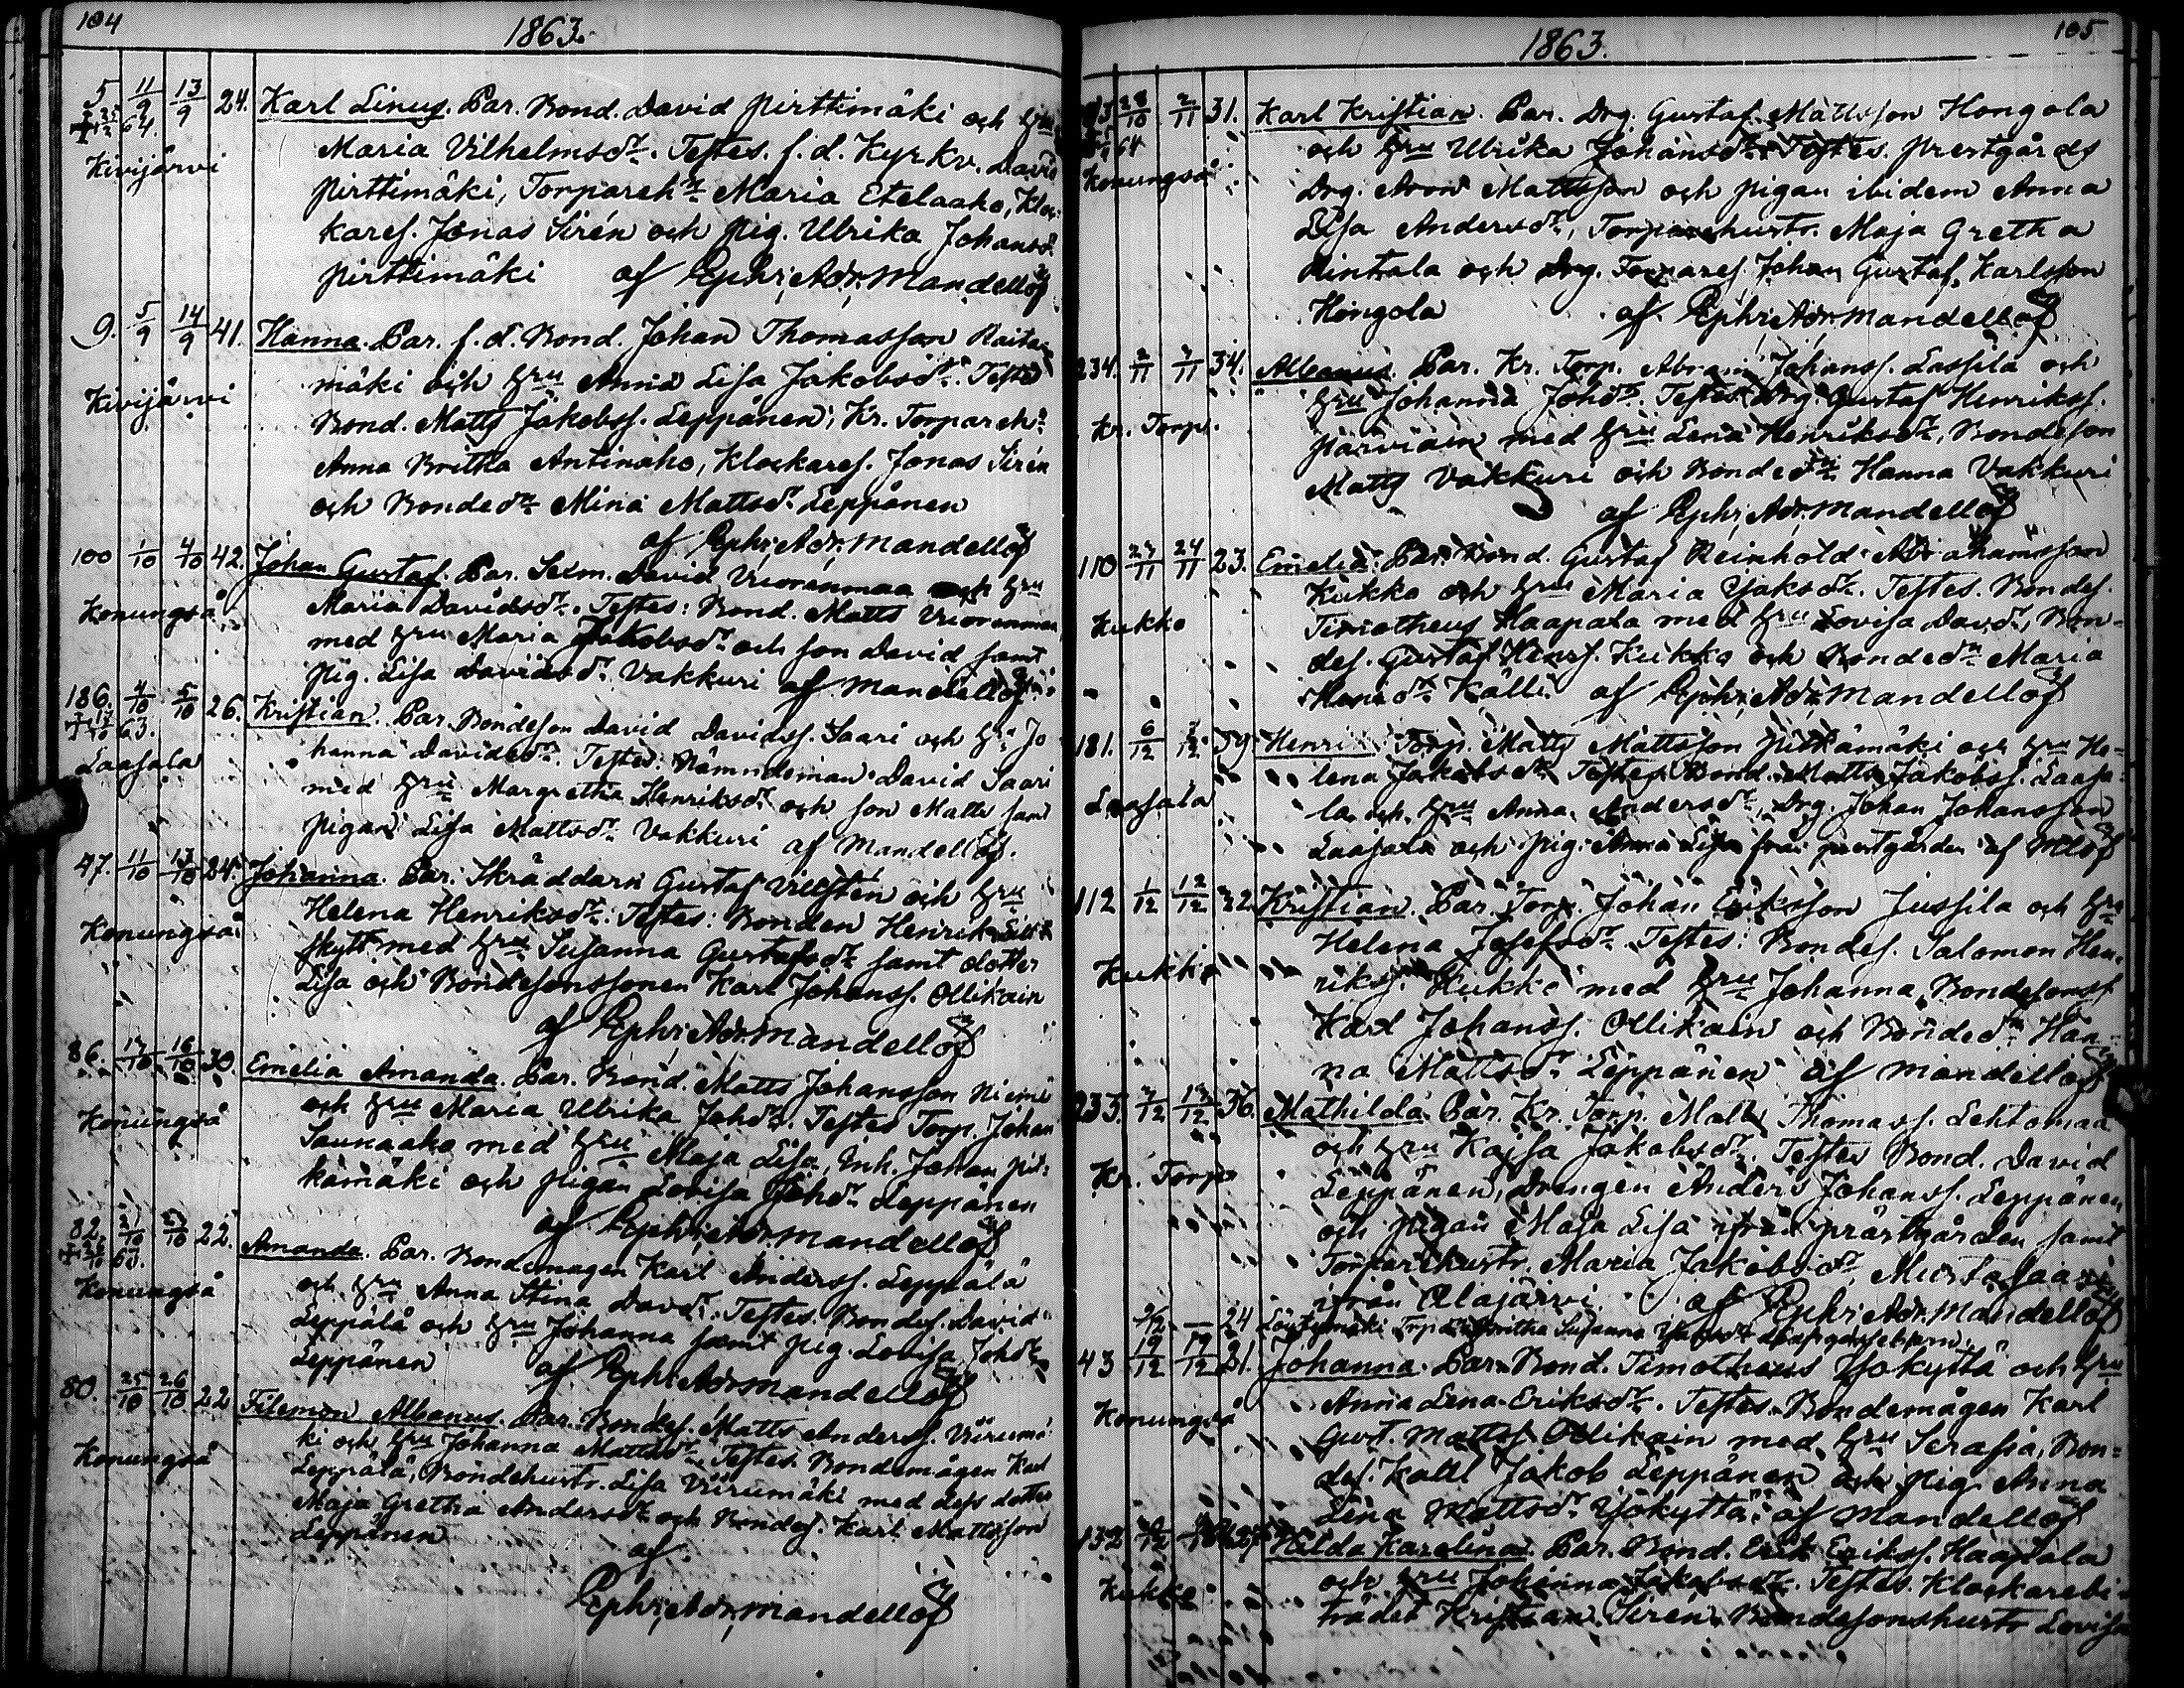 104
1863.
5 11/9 13/9 24. Karl Linus. Par. Bond. David Pirttimäki och hru
Maria Vilhelmsdr. Testes. f. d. Kyrkv. David
Kivijärvi
Pirttimäki, Torpareh. Maria Etelaaho, Kloc-
kares. Jonas Sirén och pig. Ulrika Johansdr
Pirttimäki af Ephr. Adr. Mandellöf
9. 5/9 14/9 41. Hanna. Par. f. d. Bond. Johan Thomasson Raita-
mäki och hru Anna Lisa Jakobsdr. Testes
Kivijärvi
Bond. Matts Jakobss. Leppänen, Kr. Torpareh.
Anna Britha Antinaho, Klockares. Jonas Sirén
och Bondedr Mina Mattsdr Leppänen
af Ephr. Adr. Mandellöf
100 1/10 4/10 42. Johan Gustaf. Par. Sexm. David Vuorenmaa och hru
Konungså
Maria Davidsdr. Testes: Bond. Matts Vuorenmaa
med hru Maria Jakobsdr och son David samt
pig. Lisa Davidsdr Vakkuri af Mandellöf
186. 4/10 5/10 26. Kristian. Par. Bondeson David Davidss. Saari och hru Jo
hanna Davidsdr. Testes: Nämndeman David Saari
Laasala
med hru Margretha Henriksdr och son Matts samt
pigan Lisa Mattsdr Vakkuri af Mandellöf.
47. 11/10 13/10 34. Johanna. Par. Skräddarn Gustaf Villstén och hru
Helena Henriksdr. Testes: Bonden Henrik
Konungså
skytt med hru Susanna Gustafsdr samt dotter
Lisa och Bondesonssonen Karl Johanss. Ollikain
af Ephr. Adr. Mandellöf
86. 14/10 16/10 30. Emelia Amanda. Par. Bond. Matts Johansson Niemi
och hru Maria Ulrika Johdr. Testes Torp. Johan
Konungså
Saunaaho med hru Maja Lisa, Inh. Johan Pit-
kämäki och pigan Lovisa Johdr Leppänen
af Ephr. Adr. Mandellöf
82. 21/10 23/10 22. Amanda. Par. Bondemågen Karl Anderss. Leppälä
Konungså
och hru Anna Stina Davdr. Testes. Bondes. David
Leppälä och hru Johanna samt pig. Lovisa Johdr
Leppänen af Ephr. Adr. Mandellöf
80. 25/10 26/10 22 Filemon Albanus. Par. Bondes. Matts Anderss. Viirumä-
ki och hru Johanna Mattsdr. Testes. Bondemågen Karl
Konungså
Leppälä, Bondehustr. Lisa Viirumäki med dess dotter
Maja Gretha Andersdr och Bondes. Karl Mattsson
Leppänen
af
Ephr. Adr. Mandellöf
105
1863.
28/10 2/11 31. Karl Kristian. Par. Drg. Gustaf Mattsson Hongola
och hru Ulrika Johansdr. Testes. prestgårds
Konungså
Drg. Aron Mattsson och pigan ibidem Anna
Lisa Andersdr, Torparehustr. Maja Gretha
Rintala och Drg. Torpares. Johan Gustaf Karlsson
Hongola af Ephr. Adr. Mandellöf
234. 2/11 7/11 34. Albanus Par. Kr. Torp. Abram Johanss. Lassila och
hru Johanna Johdr. Testes Drg. Gustaf Henrikss.
Kr. Torp.
Järviain med hru Lena Henriksdr, Bondeson
Matts Vakkuri och Bondedr Hanna Vakkuri
af Ephr. Adr. Mandellöf
110 23/11 24/11 23. Emelia. Par. Bond. Gustaf Reinhold Abrahamsson
Kukko och hru Maria Isaksdr. Testes. Bondes.
Kukko
Timotheus Haapala med hru Lovisa Davdr, Bon-
des. Gustaf Henrs. Kukko och Bondedr Maria
Henrdr Källi af Ephr. Adr. Mandellöf
181. 6/12 Henrik Torp. Matts Mattsson Pitkämäki och hru He-
lena Jakobsdr. Testes Bond. Matts Jakobss. Laasa-
Laasala
la och hru Anna Andersdr, Drg. Johan Johansson
Laasala och pig. Anna Lisa från prestgården af Mlöf
112 1/12 12/12 22. Kristian. Par. Torp. Johan Eriksson Jussila och hru
Helena Josefsdr. Testes: Bondes. Salomon Hen-
Kukko
rikss. Kukko med hru Johanna, Bondesonss.
Karl Johanss. Ollikain och Bondedr Han-
na Mattsdr Leppänen af Mandellöf
233. 7/12 13/12 36. Mathilda Par. Kr. Torp. Matts Thomass. Lehtomaa
och hru Kajsa Jakobsdr. Testes Bond. David
Kr. Torp
Leppänen, Drengen Anders Johanss. Leppänen
och pigan Maja Lisa ifrån prästgården samt
Torparehustr. Maria Jakobsdr Mustasaari
ifrån Alajärvi. af Ephr. Adr. Mandellöf
9/12 — 24 Torp. Britha Susanna
43 19/12 19/12 31. Johanna. Par. Bond. Timotheus Yökyttä och hru
Anna Lena Eriksdr. Testes. Bondemågen Karl
Konungså
Gust. Mattss. Ollikain med hru Serafia, Bon-
des. Kalll Jakob Leppänen och pig. Anna
Lena Mattsdr Yökyttä. af Mandellöf
132 Hilda Karolina. Par. Bond. Erik Erikss. Haapala
och hru Johanna Jakobsdr. Testes. Klockarebi-
Kukko
trädet Kristian Sirén, Bondesonshustr Lovisa